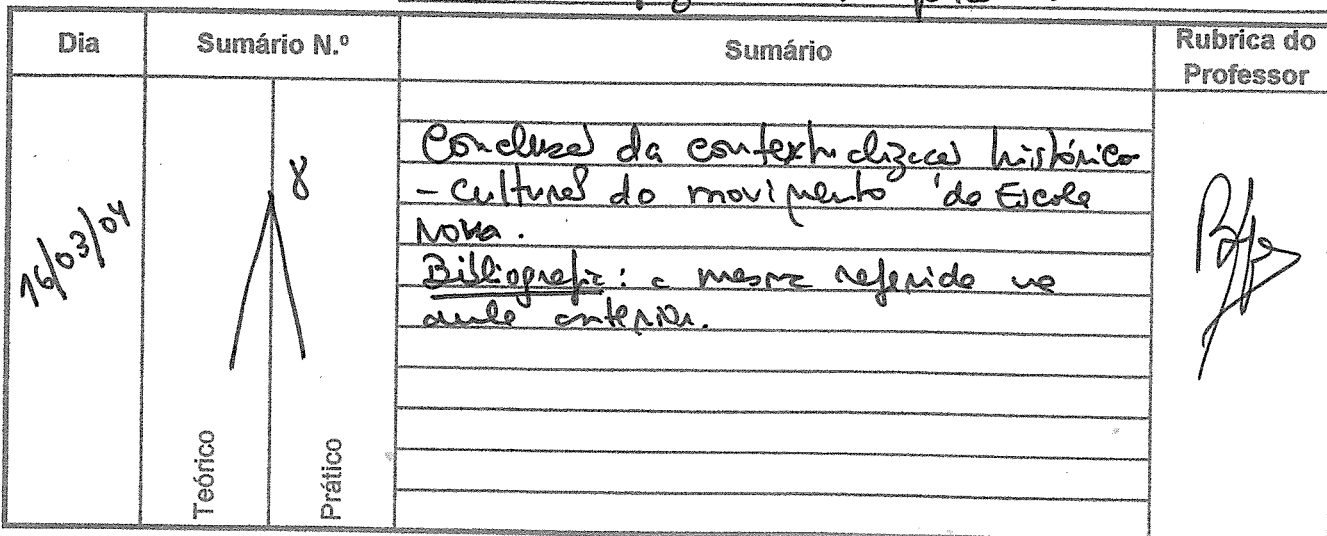 Dia Sumário N.º Sumário Rubrica do Professor
16/03/04
8
Conclusão da contextualização histórico
- cultural do movimento da Escola
Nova.
Bibliografia: a mesma referida na
aula anterior.
Teórico
Prático